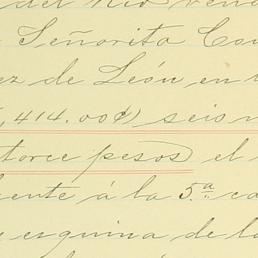 del Río
Señorita Con
ez de León en
,414.00¢) seis
torce pesos el
ente á la 5.a ca
esquina de la